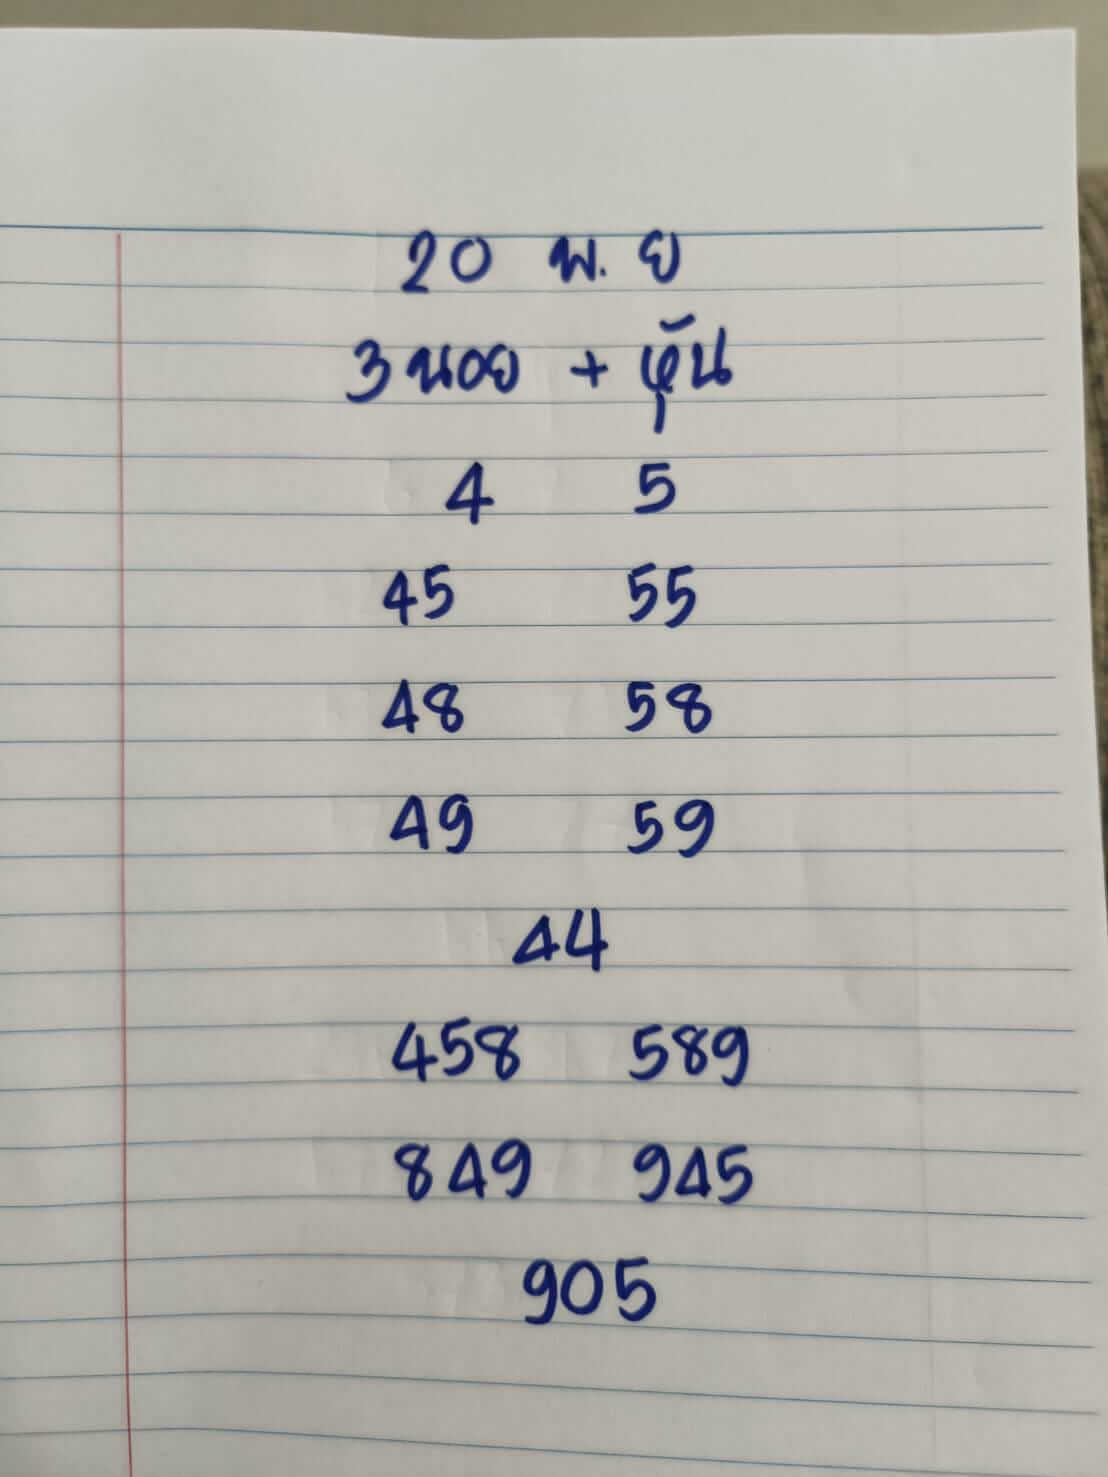 20 พ. ย
3 นอย + หุ้น
4 5
45 55
48 58
49 59
44
458 589
849 945
905